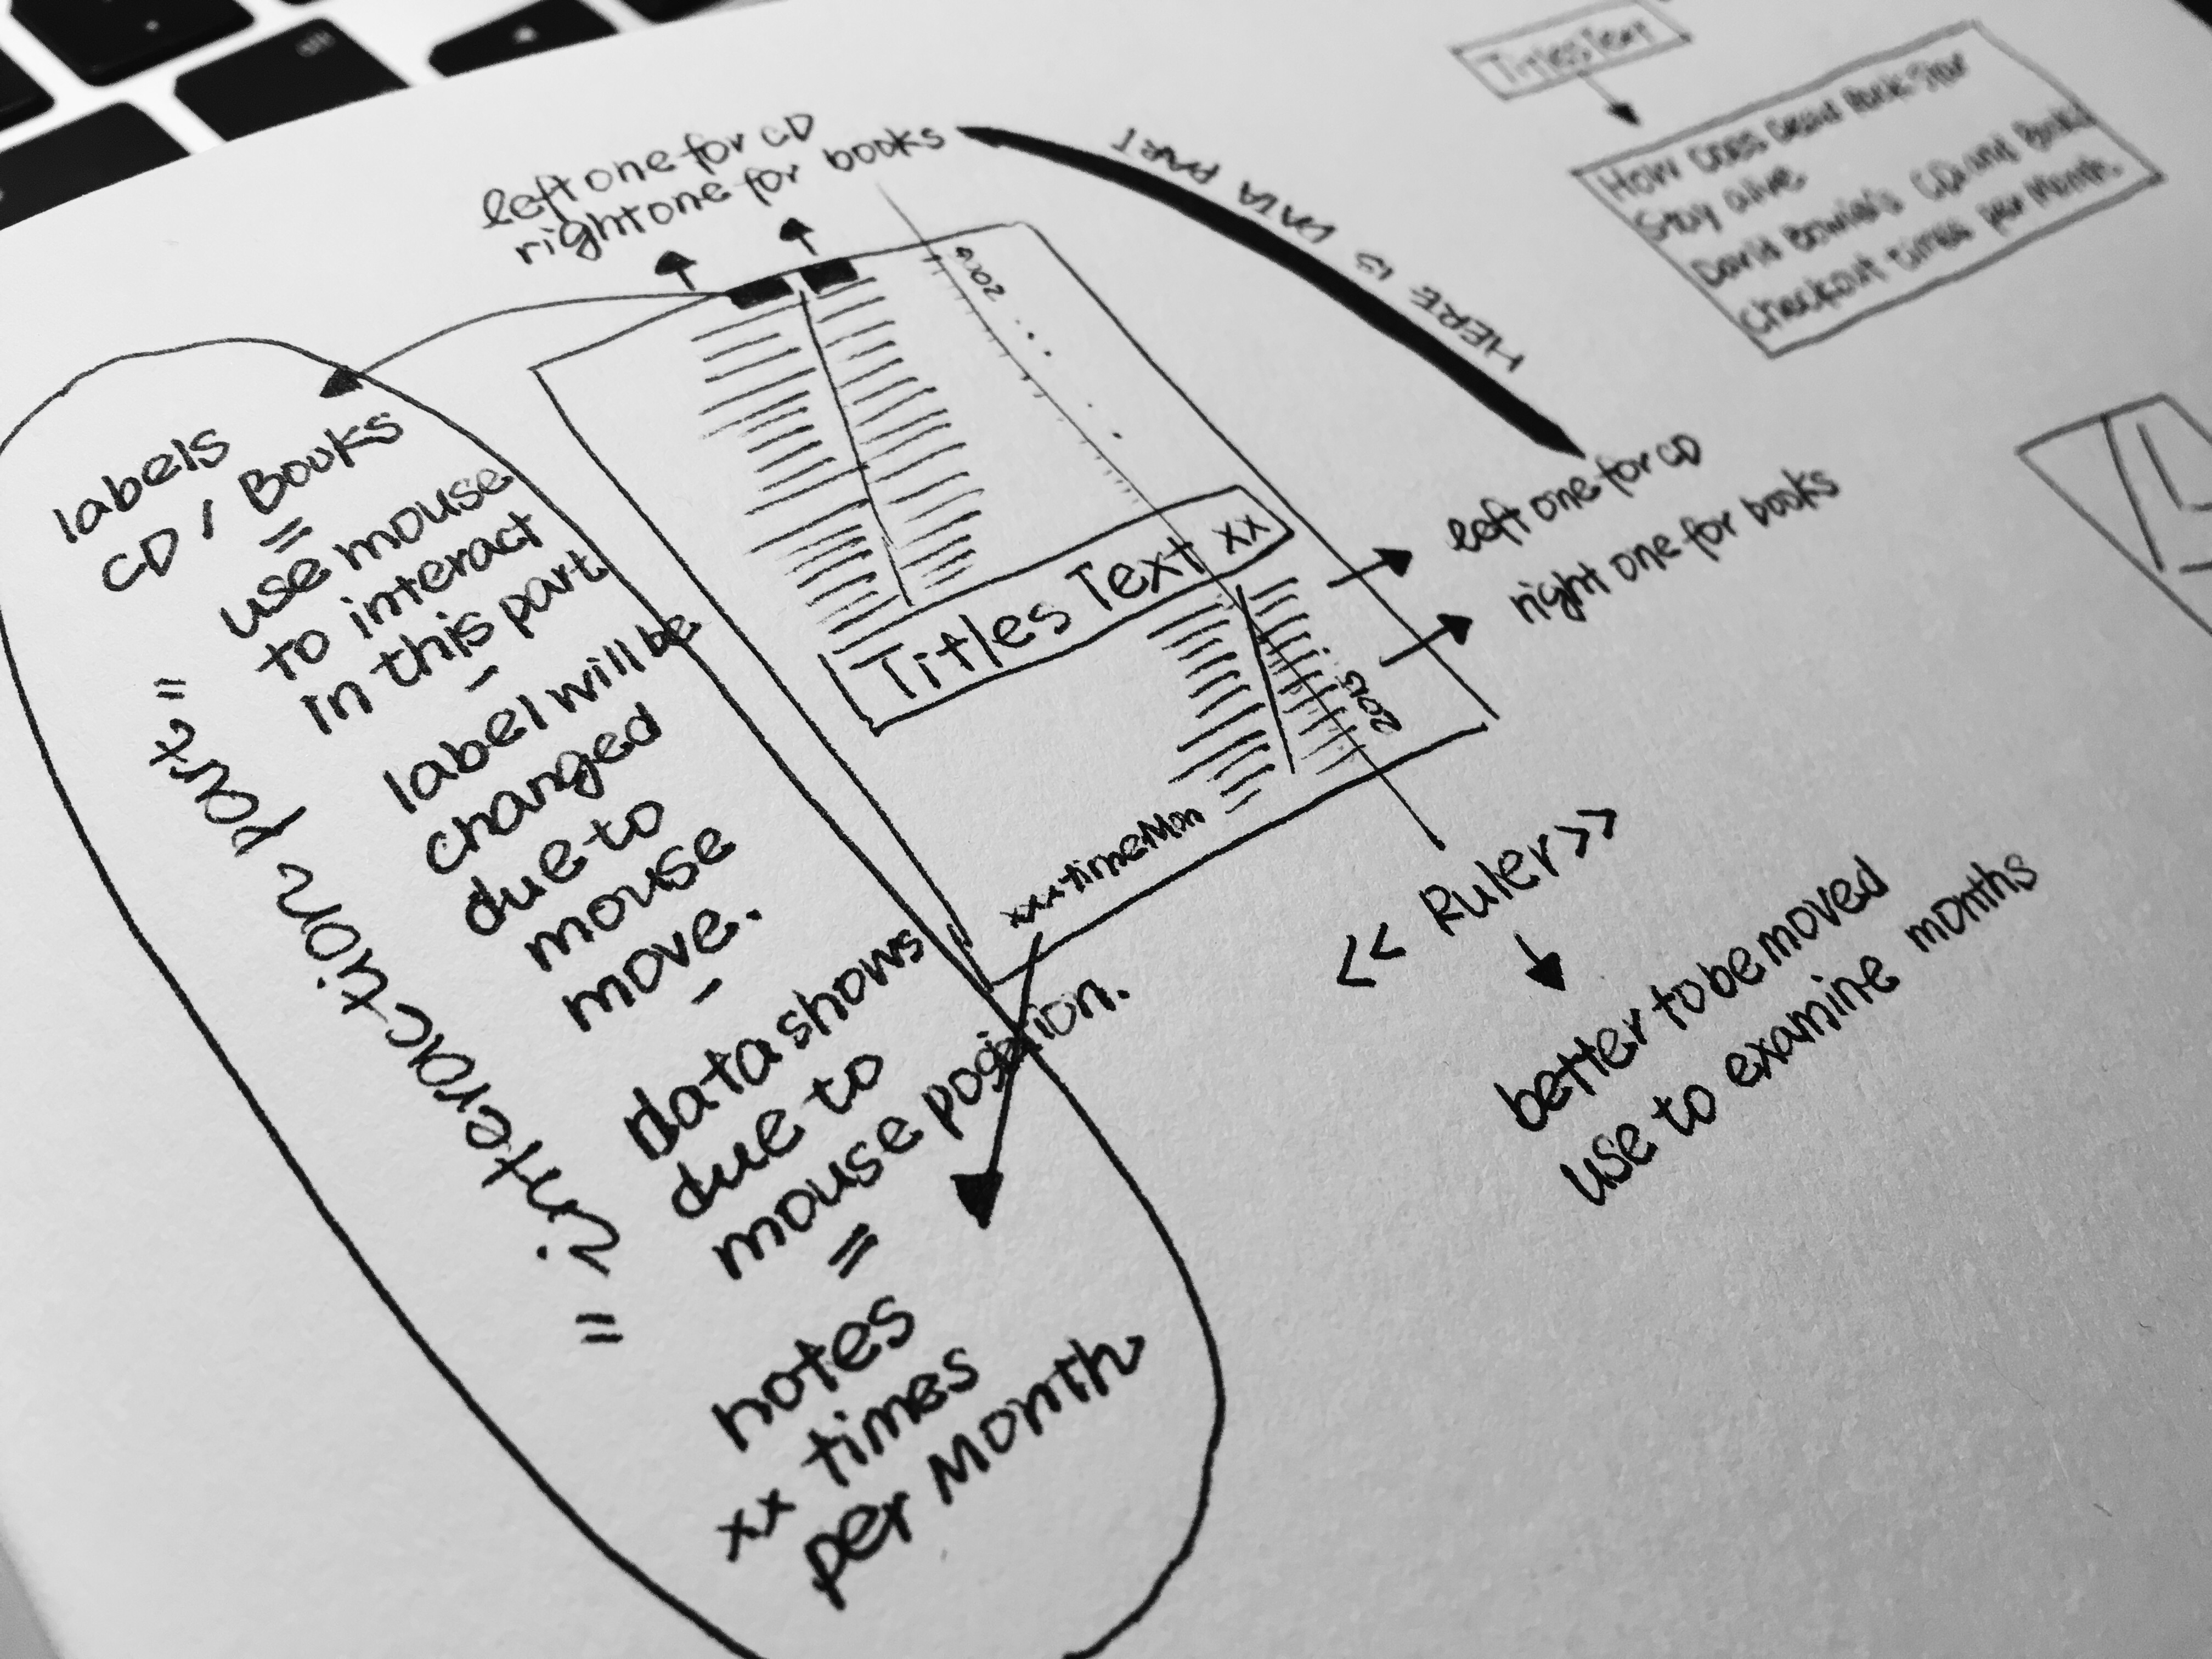 Titles Text
How Does Dead Rock Star
Stay alive
David Bowie's CDs and Books
checkout times per Month
left one for CD
right one for books
HERE IS DATA PART
2006
labels
CD / Books
=
use mouse
to interact
in this part
-
label will be
changed
due to
mouse
move.
-
data shows
due to
mouse position.
=
notes
xx times
per Month
"interaction part"
Titles Text xx
left one for CD
right one for books
xxx time Mon
<< Ruler >>
better to be moved
use to examine months